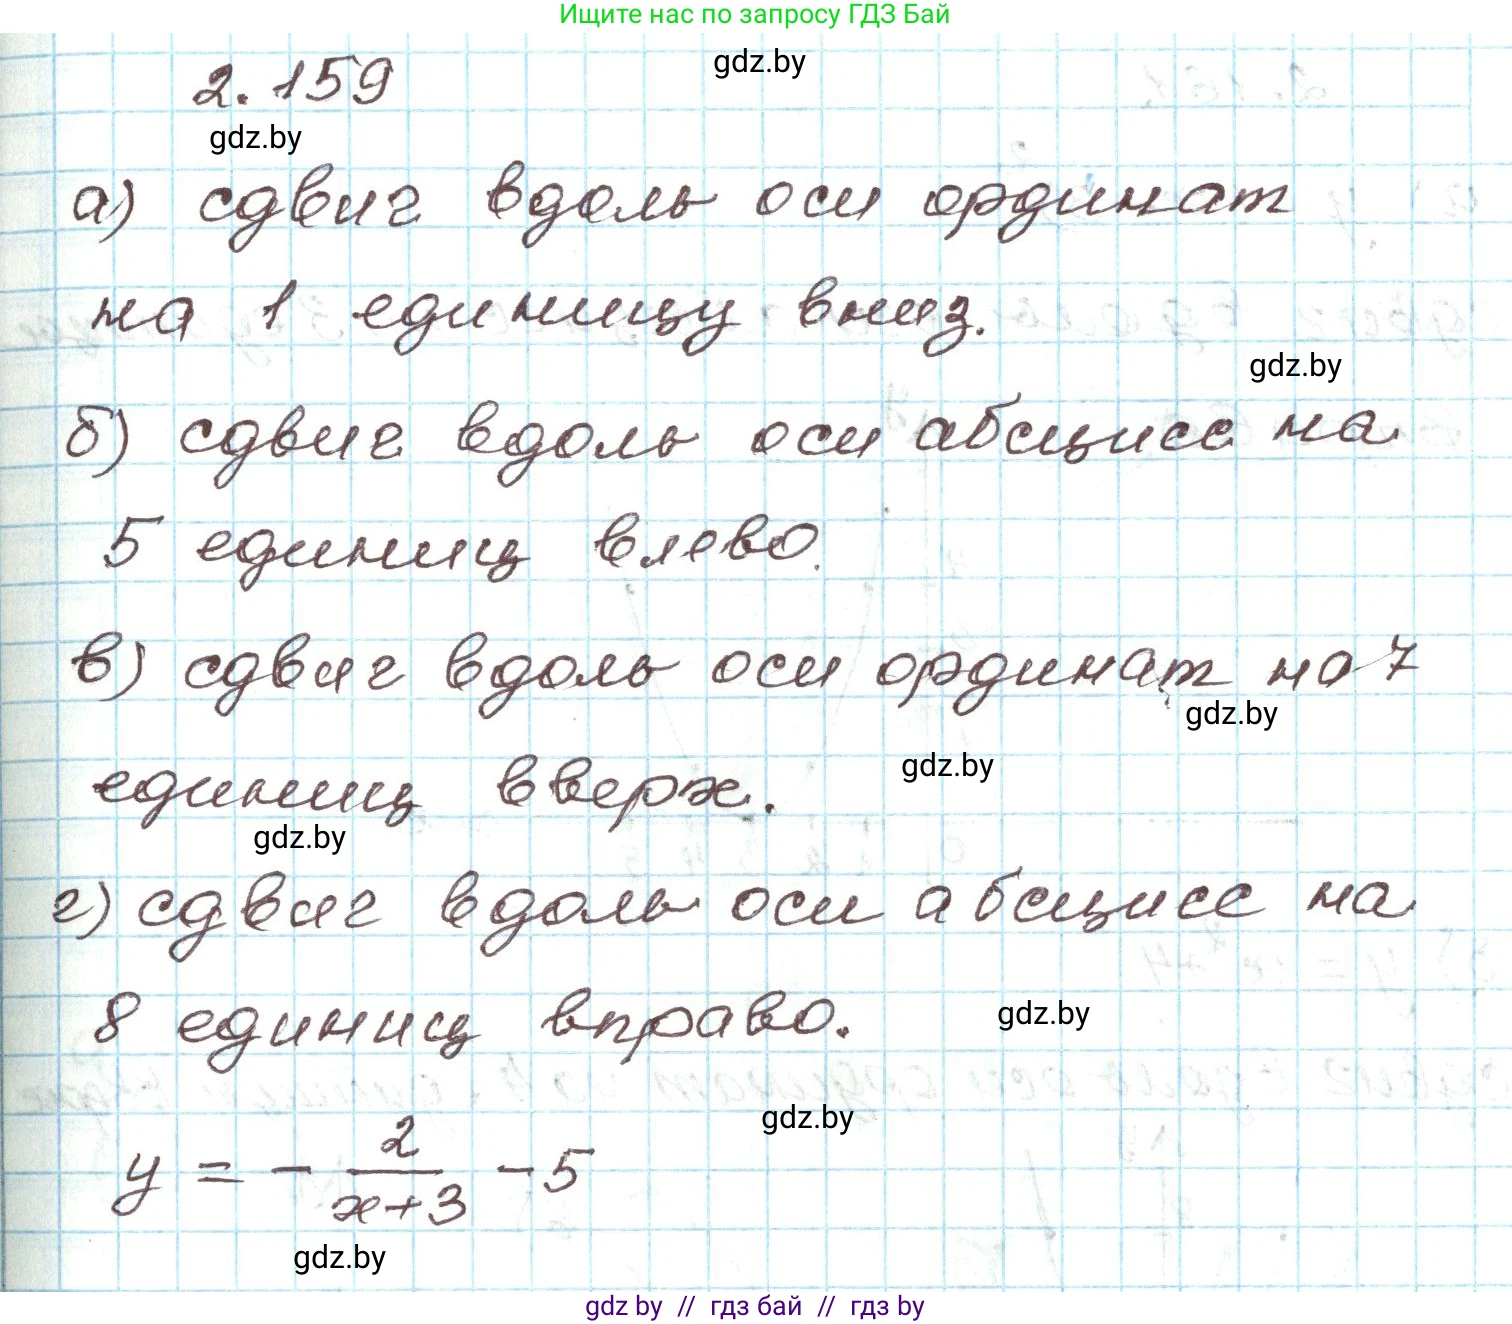 Ищите нас по запросу ГДЗ Бай
2.159
gdz.by
gdz.by
а) сдвиг вдоль оси ординат
на 1 единицу вниз.
gdz.by
б) сдвиг вдоль оси абсцисс на
5 единиц влево.
в) сдвиг вдоль оси ординат на 7
gdz.by
единиц вверх.
gdz.by
gdz.by
г) сдвиг вдоль оси абсцисс на
8 единиц вправо.
gdz.by
gdz.by
y = - 2/(x+3) - 5
gdz.by
gdz by // гдз бай // гдз by